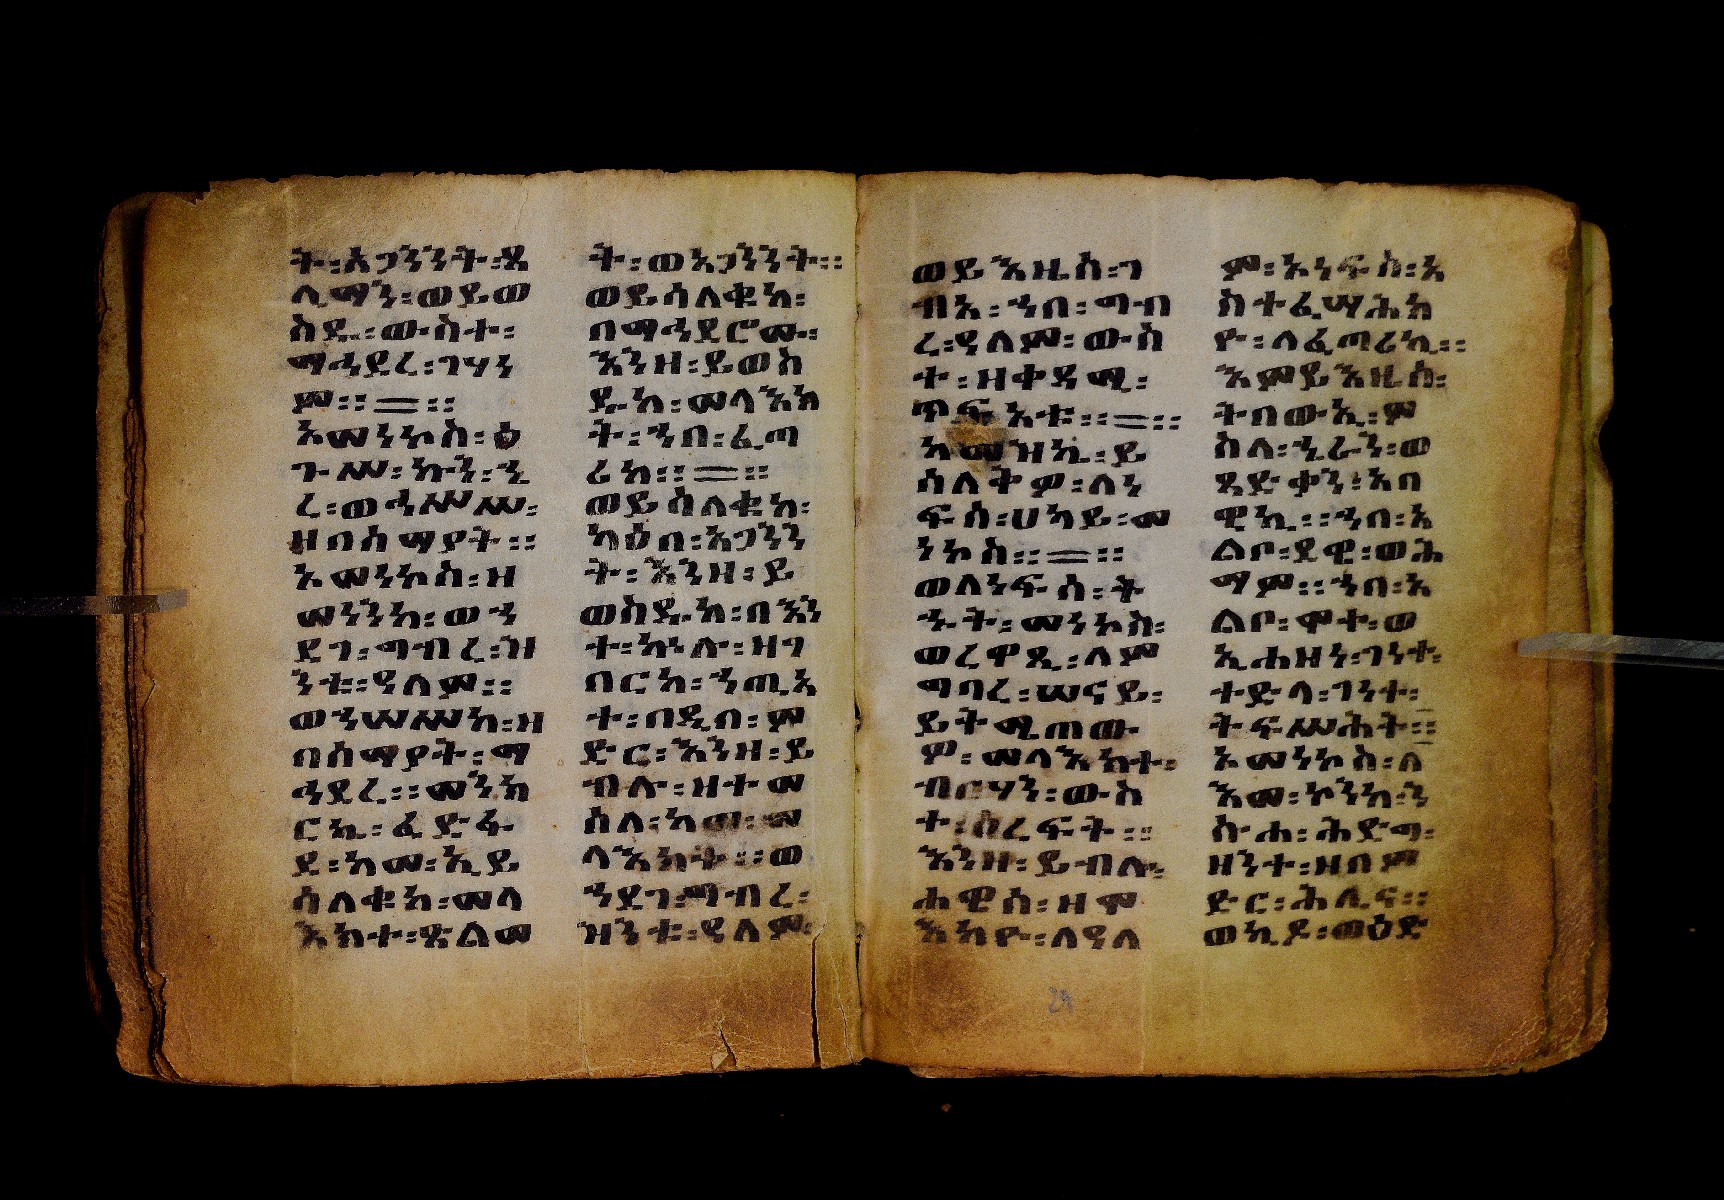 ት፡አጋንንት፡ጸ
ሊማን፡ወይወ
ስዱ፡ውስተ፡
ማኅደረ፡ገሃነ
ም፡፡=፡፡
አመነኮስ፡ዕ
ጉሥ፡ኩን፡ኄ
ረ፡ወኅሥሥ፡
ዘበሰማያት፡፡
አመነኮስ፡ዘ
መነንከ፡ወን
ደገ፡ግብረ፡ዝ
ንቱ፡ዓለም፡፡
ወኅሠሥከ፡ዘ
በሰማያት፡ማ
ኅደረ፡፡መንክ
ርኒ፡ፈድፋ
ደ፡ከመ፡ኢይ
ሳለቁከ፡መላ
እክተ፡ጽልመ
ት፡ወአጋንንት፡፡
ወይሳለቁከ፡
በማኅደሮሙ፡
እንዘ፡ይወስ
ዱከ፡መላእክ
ት፡ኀበ፡ፈጣ
ሪከ፡፡=፡፡
ወይሳለቁከ፡
ካዕበ፡አጋንን
ት፡እንዘ፡ይ
ወስዱከ፡በእን
ተ፡ኵሉ፡ዘገ
በርከ፡ኀጢአ
ተ፡በዲበ፡ም
ድር፡እንዘ፡ይ
ብሉ፡ዘተመ
ሰለ፡ከመ፡መ
ላእክት፡፡ወ
ኀደገ፡ማብረ፡
ዝንቱ፡ዓለም፡
ወይእዜሰ፡ገ
ብአ፡ኀበ፡ግብ
ረ፡ዓለም፡ውስ
ተ፡ዘቀዳሚ፡
ጥፍአቱ፡፡=፡፡
አመዝኒ፡ይ
ሰለጥም፡ለነ
ፍሰ፡ሀካይ፡መ
ነኮስ፡፡=፡፡
ወለነፍሰ፡ት
ጉት፡መነኮስ፡
ወረዋጺ፡ለም
ግባረ፡ሠናይ፡
ይትሜጠው
ም፡መላእክት፡
ብርሃን፡ውስ
ተ፡ዕረፍት፡፡
እንዘ፡ይብሉ፡
ሐዊስ፡ዘሞ
እኪዮ፡ለዓለ
ም፡አነፍስ፡አ
ስተፈሣሕክ
ዮ፡ለፈጣሪኪ፡፡
እምይእዜሰ፡
ትበውኢ፡ም
ስለ፡ኄራን፡ወ
ጻድቃን፡አበ
ዊኪ፡፡ኀበ፡አ
ልቦ፡ደዌ፡ወሕ
ማም፡፡ኀበ፡አ
ልቦ፡ሞተ፡ወ
ኢሐዘነ፡ገነተ፡
ተድላ፡ገነተ፡
ትፍሥሕት፡፡
አመነኮስ፡ለ
እመ፡ኮንከ፡ን
ስሐ፡ሕድግ፡
ዘንተ፡ዘበም
ድር፡ሕሊና፡፡
ወኪዶ፡ወዕድ